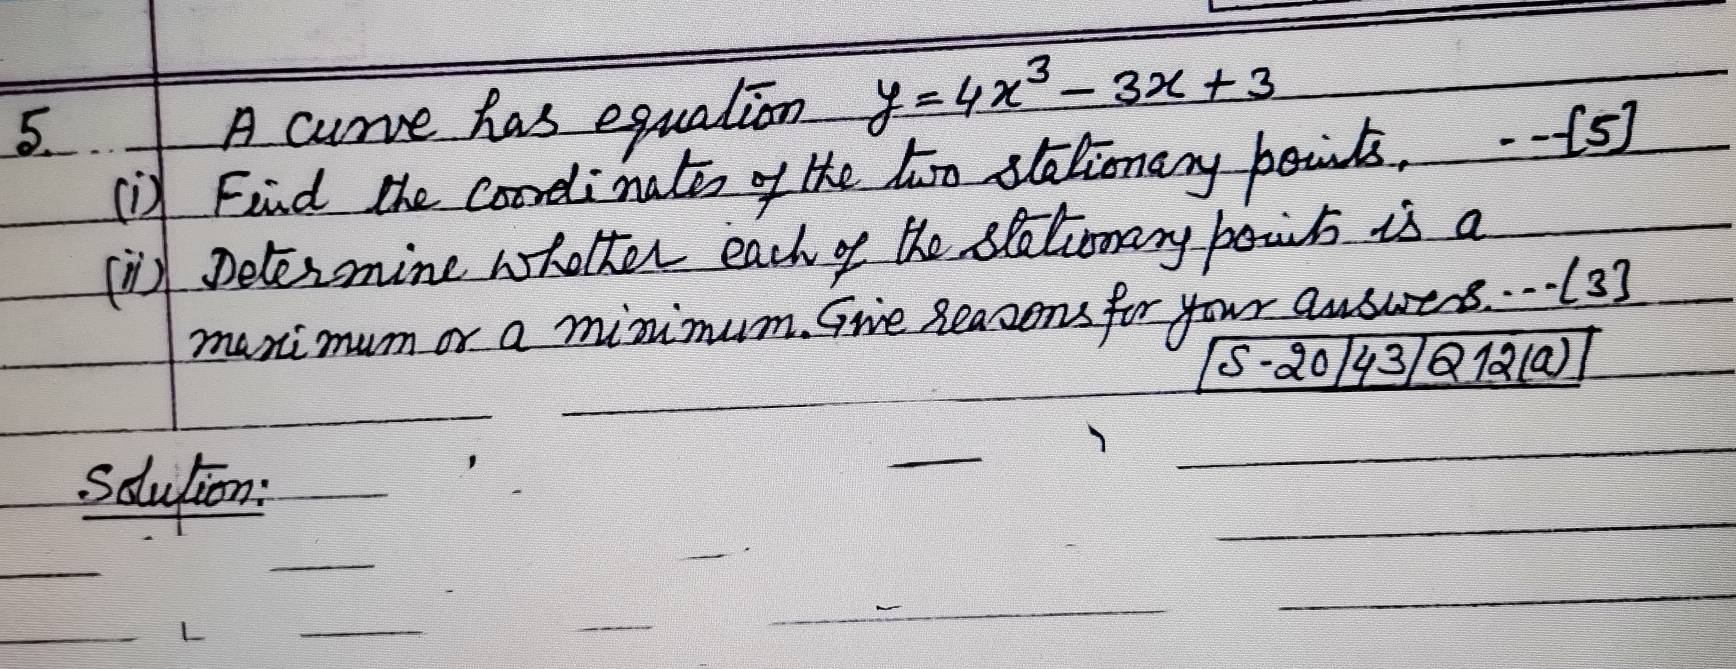 5. A curve has equation y = 4x³ - 3x + 3
(i) Find the coordinates of the two stationary points. ---[5]
(ii) Determine whether each of the stationary points is a
maximum or a minimum. Give reasons for your answers. ---[3]
S-20/43/Q12(a)
Solution: